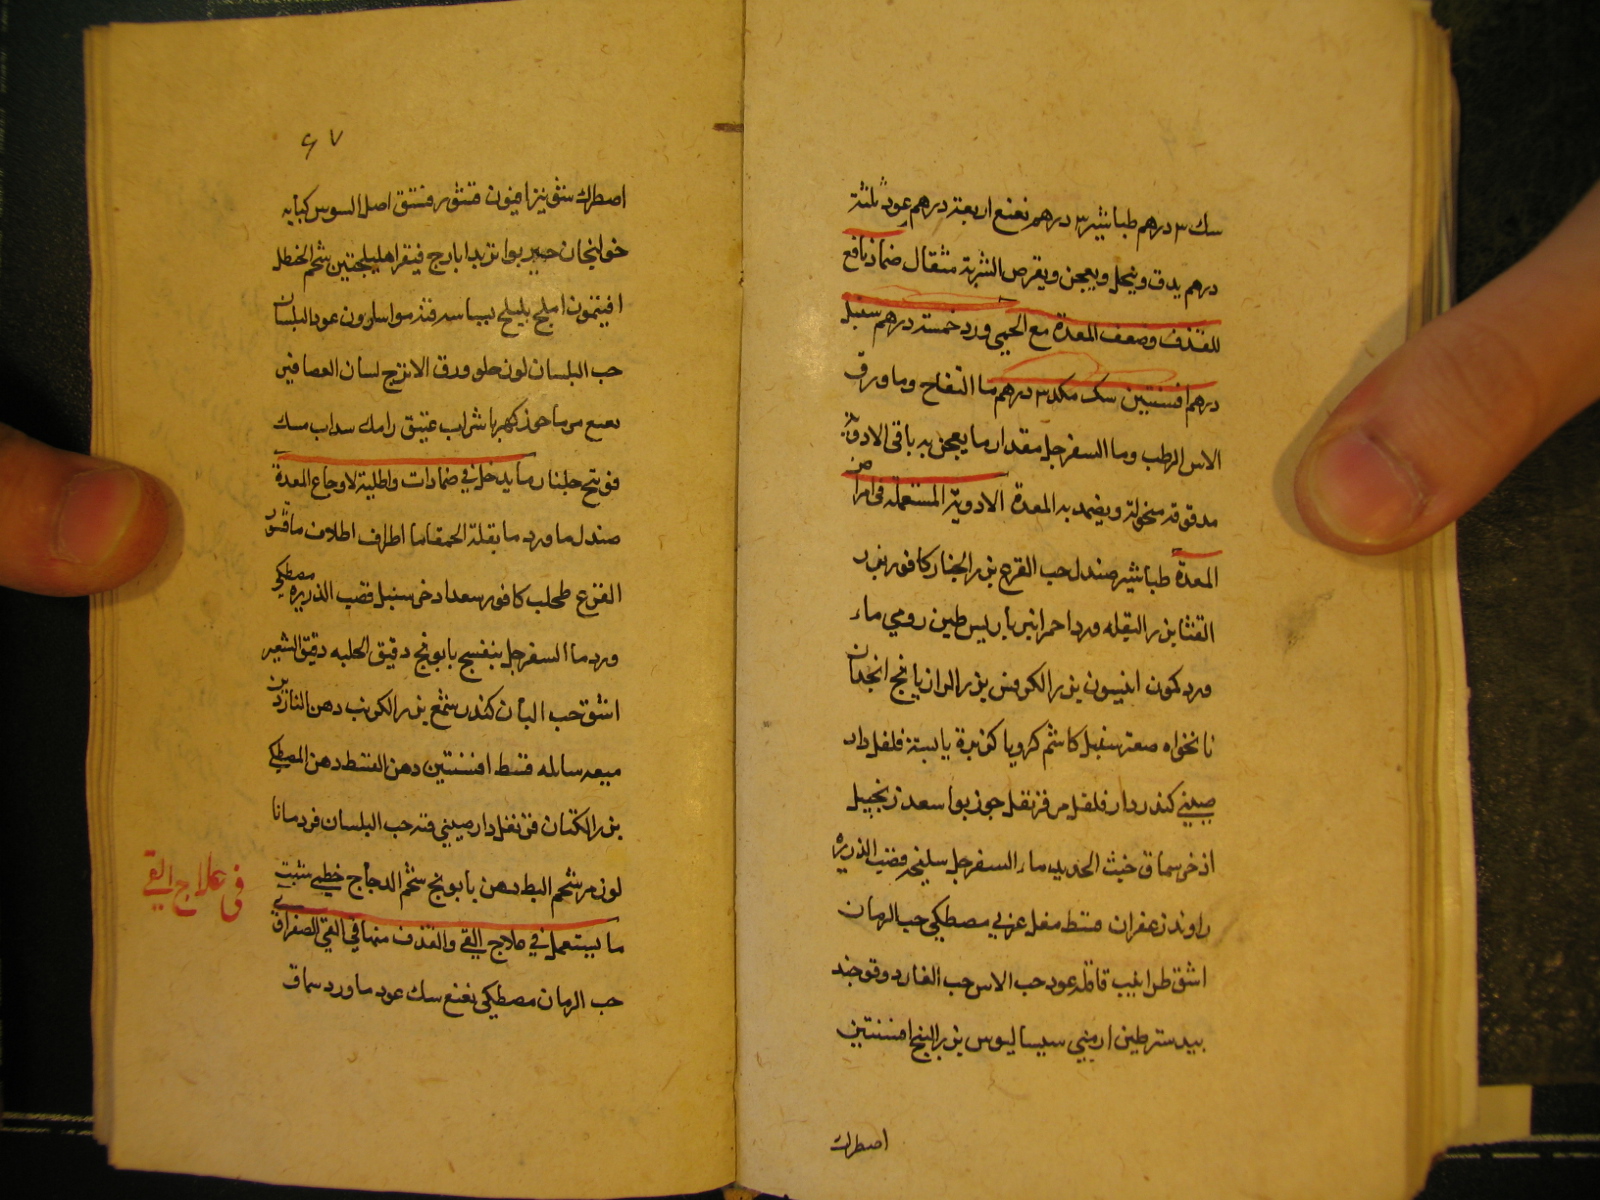 سك ٣ درهم طباشير ٣ درهم نعنع اربعة درهم عود ثلثة
درهم يدق وينخل ويعجن ويقرص الشربة مثقال ضماد نافع
للقذف وضعف المعدة مع الحمى ورد خمسة درهم سنبل
درهم افسنتين سك مكد ٣ درهم ما التفاح وما ورق
الاس الرطب وما السفرجل مقدار ما يعجن به باقى الادوية
مدقوقة منخولة ويضمد به المعدة الادوية المستعملة فى امراض
المعدة طباشير صندل حب القرع بزر الخيار كافور بزر
القثا بزر البقله ورد احمر انبرباريس طين رومي ماء
ورد كمون انيسون بزر الكرفس بزر الرازيانج انجدان
نانخواه صعتر سنبل كاشم كرويا كزبرة يابسة فلفل دار
صيني كندر دار فلفل قرنفل جوز بوا سعد زنجبيل
اذخر سماق خبث الحديد ماء السفرجل سليخه قصب الذريره
راوند زعفران قسط مقل عربي مصطكي حب الرمان
اشق طراثيث قاقله عود حب الاس حب الغار دوقو جند
بيدستر طين ارمني سيساليوس بزر البنج افسنتين
اصطرك
٤٧
اصطرك شونيز افيون قشور فستق اصل السوس كبابه
خولنجان خيربوا تربد ايارج فيقرا هليلجتين شحم الحنظل
افيتمون املج بليلج بسباسه قندس واسارون عود البلسان
حب البلسان لوز حلو ورق الاترج لسان العصافير
نعنع مرماحوز كهربا شراب عتيق رامك سداب مسك
فوتنج جلنار ما يدخل في ضمادات واطلية لاوجاع المعدة
صندل ما ورد ما بقلة الحمقا ما اطراف اطلاف ما قشور
القرع طحلب كافور سعد اذخر سنبل قصب الذريره مصطكي
ورد ما السفرجل بنفسج بابونج دقيق الحلبه دقيق الشعير
اشق حب البان كندر شمع بزر الكرنب دهن الناردين
ميعه سايله قسط افسنتين دهن القسط دهن المصطكي
بزر الكتان قرنفل دار صيني قنه حب البلسان قردمانا
لوز مر شحم البط دهن بابونج شحم الدجاج خطمي شبت
ما يستعمل في علاج القي والقذف منها في القي الصفراوي
حب الرمان مصطكي نعنع سك عود ما ورد سماق
في علاج القي